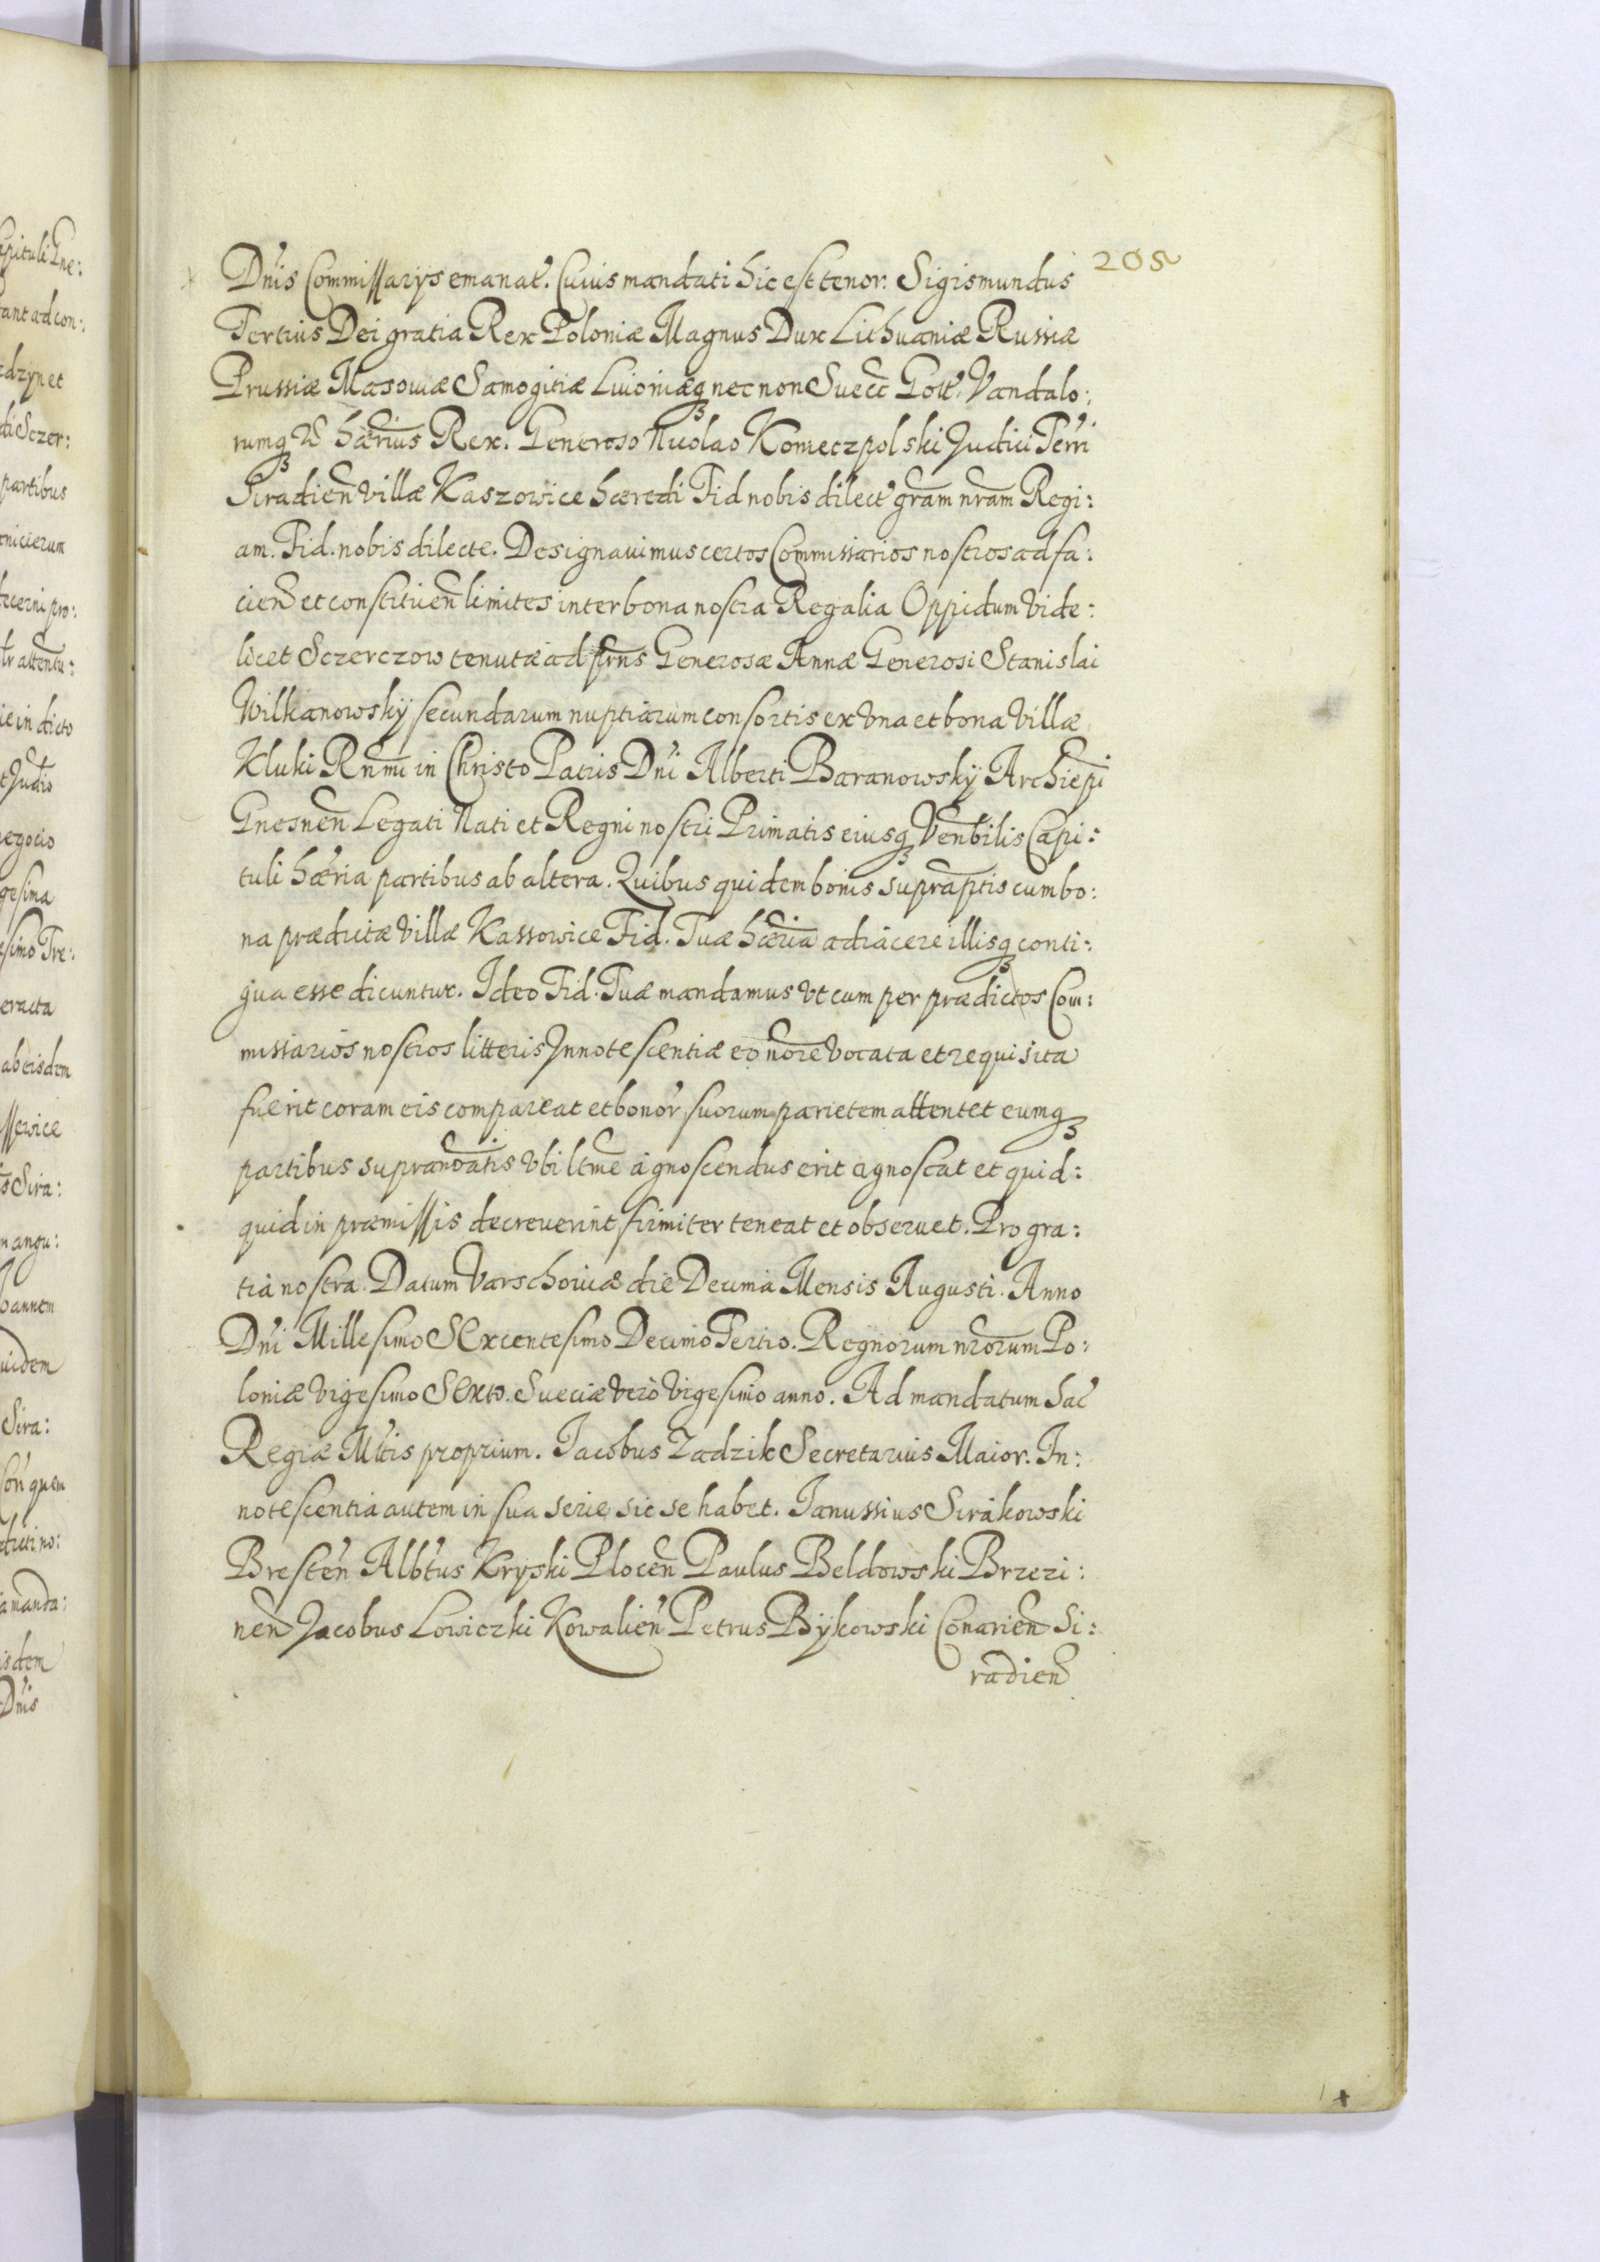 205
Dnis Commissarÿs emanat. Cuius mandati hic est tenor. Sigismundus
Tertius Dei gratia Rex Poloniæ Magnus Dux Lithuaniæ Russiæ
Prussiæ Masoviæ Samogitiæ Livoniæq nec non Suecc Gott. Vandalo:
rumq hærius Rex. Generoso Nicolao Koniecpolski Judici Terri
Siradien villæ Kaszowice hæredi Fid nobis dilect gram nram Regi:
am. Fid. nobis dilecte. Designavimus certos Commissarios nostros ad fa:
cien et constituen limites inter bona nostra Regalia Oppidum vide:
licet Sczerczow tenutæ ad prns Generosæ Annæ Generosi Stanislai
Wilkanowskÿ secundarum nuptiarum consortis ex vna et bona villæ
Kluki Rnmi in Christo Patris Dni Alberti Baranowskÿ Archiepi
Gnesnen Legati Nati et Regni nostri Primatis eiusq Venbilis Capi:
tuli hæria partibus ab altera. Quibus quidem bonis supraptis cum bo:
na prædictæ villæ Kassowice Fid. Tuæ hæria adiacere illisq conti:
gua esse dicuntur. Ideo Fid. Tuæ mandamus vt cum per prædictos Com:
missarios nostros litteris Innotescentiæ eo nore vocata et requisita
fuerit coram eis compareat et bonor suorum parietem attentet eumq
partibus supranoatis vbi ltme agnoscendus erit agnoscat et quid:
quid in præmissis decreverint firmiter teneat et observet. Pro gra:
tia nostra. Datum Varschoviæ die Decima Mensis Augusti. Anno
Dni Millesimo SExcentesimo Decimo Tertio. Regnorum nrorum Po:
loniæ vigesimo SExto. Sueciæ vero vigesimo anno. Ad mandatum Sac
Regiæ Mttis proprium. Jacobus Zadzik Secretarius Maior. In:
notescentia autem in sua serie sic se habet. Janussius Sirakowski
Bresten Albtus Kryski Plocen Paulus Beldowski Brzezi:
nen Jacobus Lowiczki Kowalien Petrus Bÿkowski Conarien Si:
radien